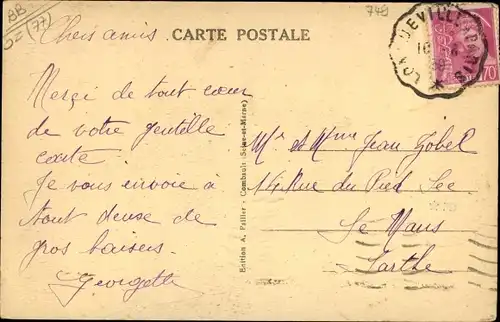 BB
(77)
Chers amis
CARTE POSTALE
749
LONGUEVILLE A PARIS
70
Merci de tout cœur
de votre gentille
carte.
Je vous envoie à
tout deuse de
gros baisers.
Georgette
Edition A. Failler - Combault (Seine-et-Marne)
Mr et Mme Jean Gobel
14 Rue du Pied Sec
Le Mans
Sarthe